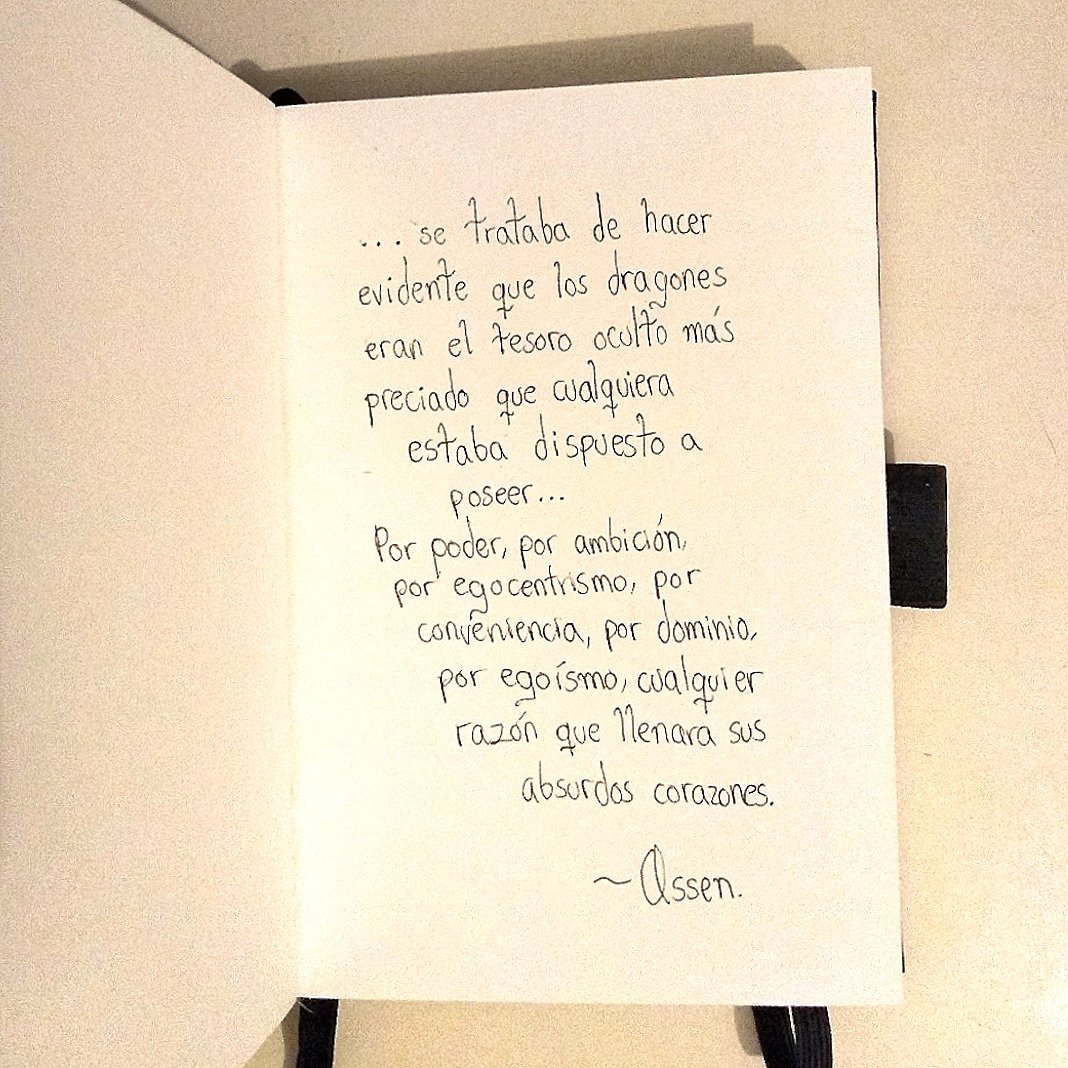 ... se trataba de hacer
evidente que los dragones
eran el tesoro oculto más
preciado que cualquiera
estaba dispuesto a
poseer...
Por poder, por ambición,
por egocentrismo, por
conveniencia, por dominio,
por egoísmo, cualquier
razón que llenara sus
absurdos corazones.
~Assen.